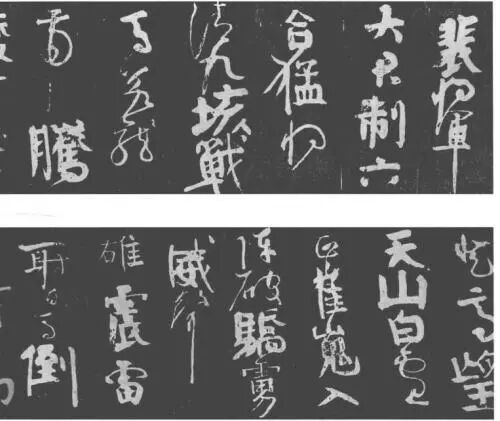 裴將軍
大君制六
合猛將
清九垓戰
馬若龍
虎騰
登高望
天山白雲
正崔嵬入
陣破驕虜
威聲
雄震雷
射百馬倒